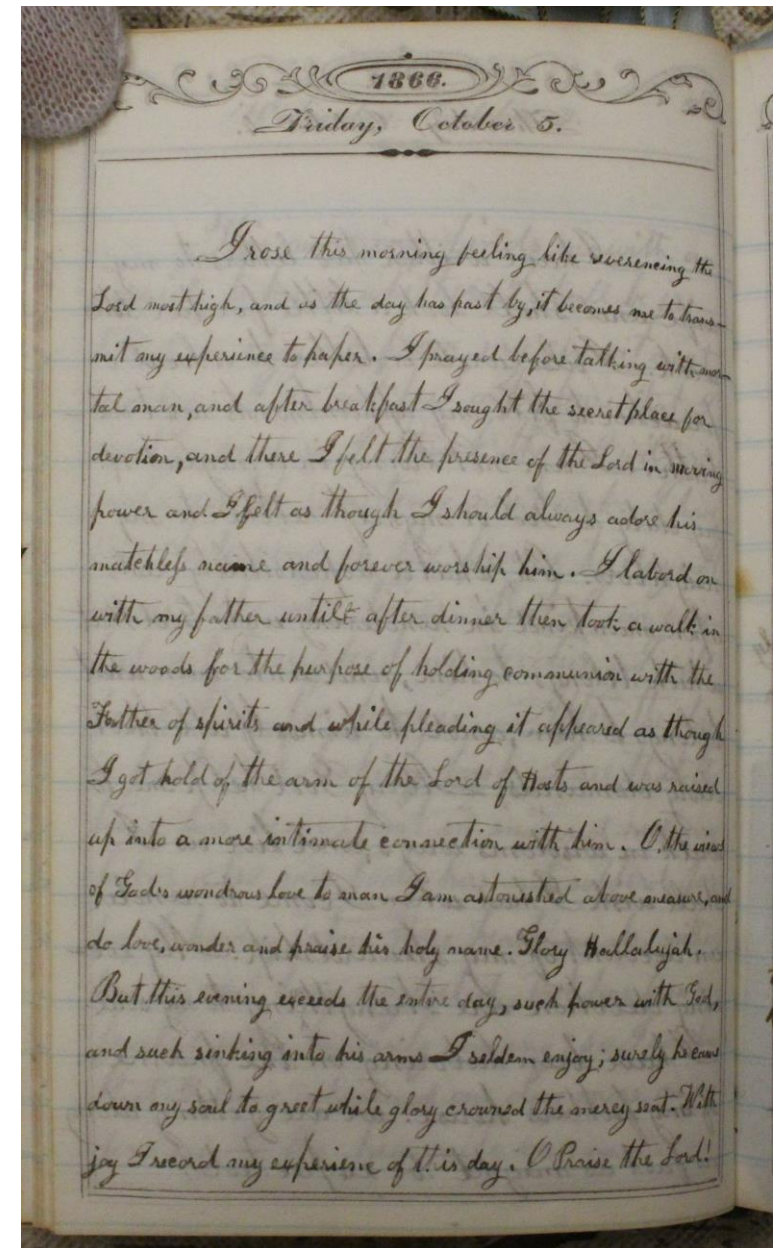 1866.
Friday, October 5.
I rose this morning feeling like reverencing the
Lord most high, and as the day has past by, it becomes me to trans-
mit my experience to paper. I prayed before talking with mor-
tal man, and after breakfast I sought the secret place for
devotion, and there I felt the presence of the Lord in moving
power and I felt as though I should always adore his
matchless name and forever worship him. I labord on
with my father until after dinner then took a walk in
the woods for the purpose of holding communion with the
Father of spirits and while pleading it appeared as though
I got hold of the arm of the Lord of Hosts and was raised
up into a more intimate connection with him. O, the views
of God's wondrous love to man I am astonished above measure, and
do love, wonder and praise his holy name. Glory Hallalujah.
But this evening exceeds the entire day, such power with God,
and such sinking into his arms I seldem enjoy; surely he came
down my soul to greet while glory crowned the mercy seat. With
joy I record my experienc of this day. O Praise the Lord!